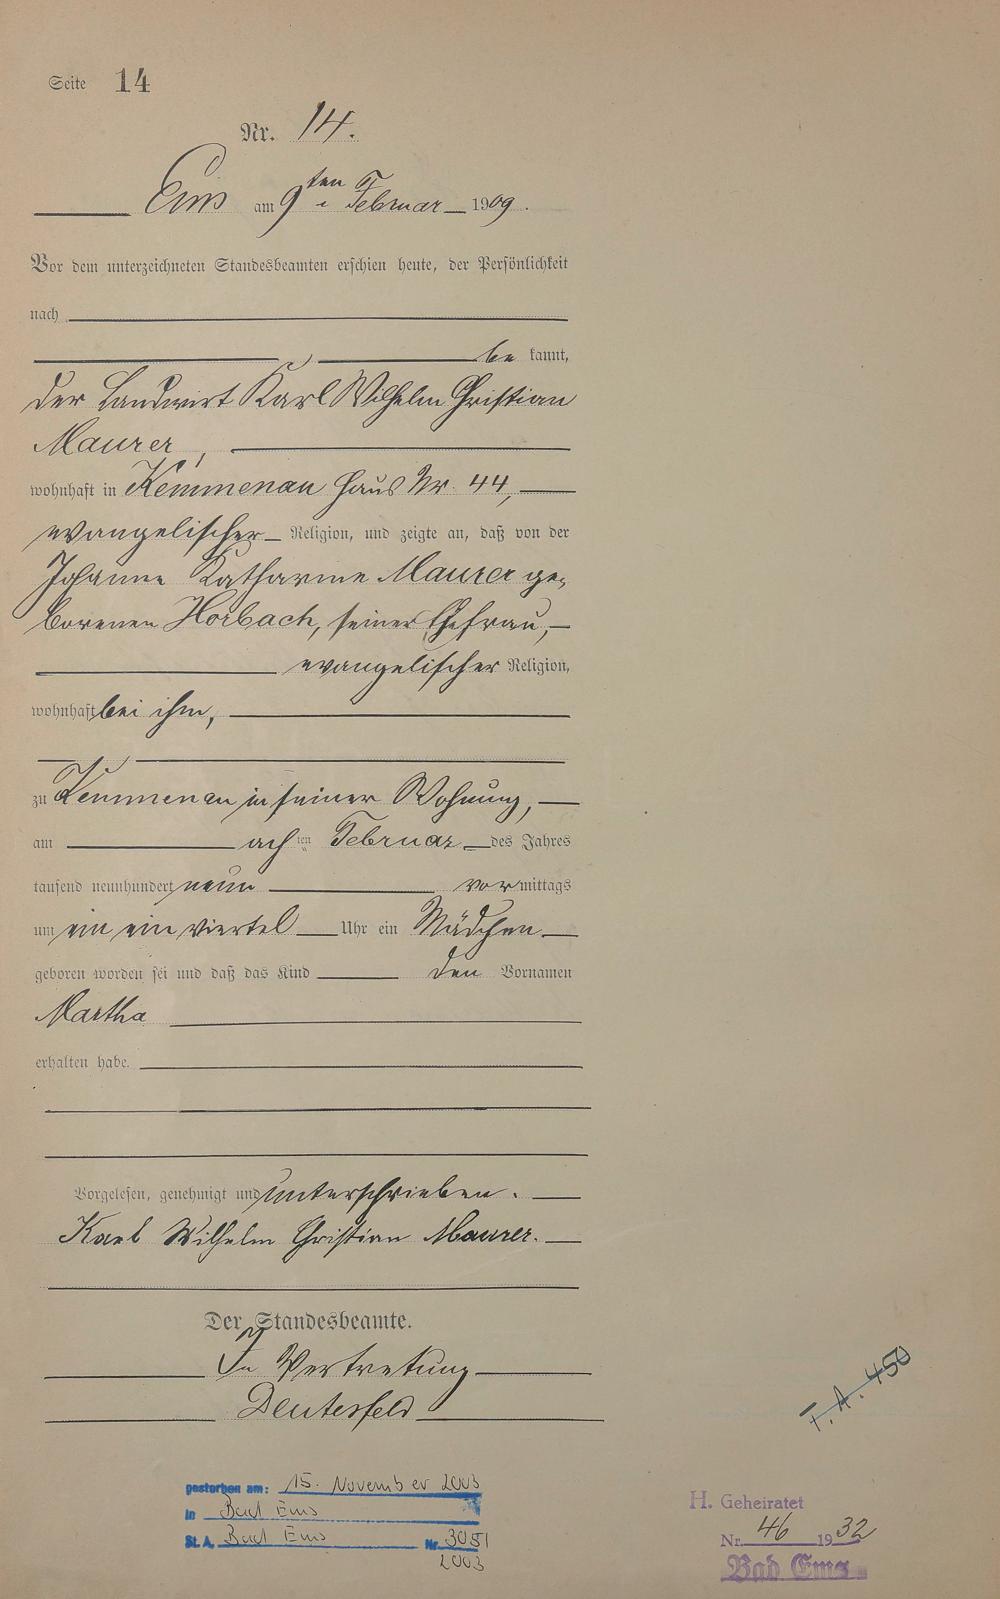 Seite 14
Nr. 14.
Ems am 9ten Februar 1909.
Vor dem unterzeichneten Standesbeamten erschien heute, der Persönlichkeit
nach
be kannt,
der Landwirt Karl Wilhelm Christian
Maurer,
wohnhaft in Kemmenau Haus Nr. 44,
evangelischer Religion, und zeigte an, daß von der
Johanne Katharine Maurer ge-
borenen Horbach, seiner Ehefrau,
evangelischer Religion,
wohnhaft bei ihm,
zu Kemmenau in seiner Wohnung,
am achten Februar des Jahres
tausend neunhundert neun vormittags
um ein ein viertel Uhr ein Mädchen
geboren worden sei und daß das Kind den Vornamen
Martha
erhalten habe.
Vorgelesen, genehmigt und unterschrieben.
Karl Wilhelm Christian Maurer.
Der Standesbeamte.
In Vertretung
Deutesfeld
T. A. 450
gestorben am: 15. November 2003
in Bad Ems
St. A. Bad Ems Nr. 3051
2003
H. Geheiratet
Nr. 46 1932
Bad Ems